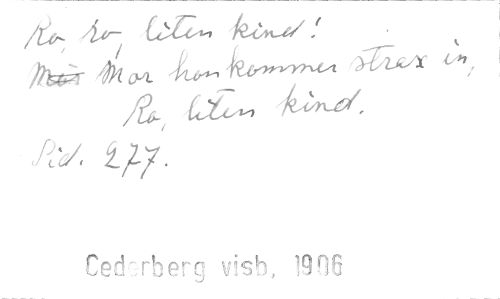 Ro, ro, liten kind!
Mor hon kommer strax in,
Ro, liten kind.
Sid. 277.
Cederberg visb, 1906